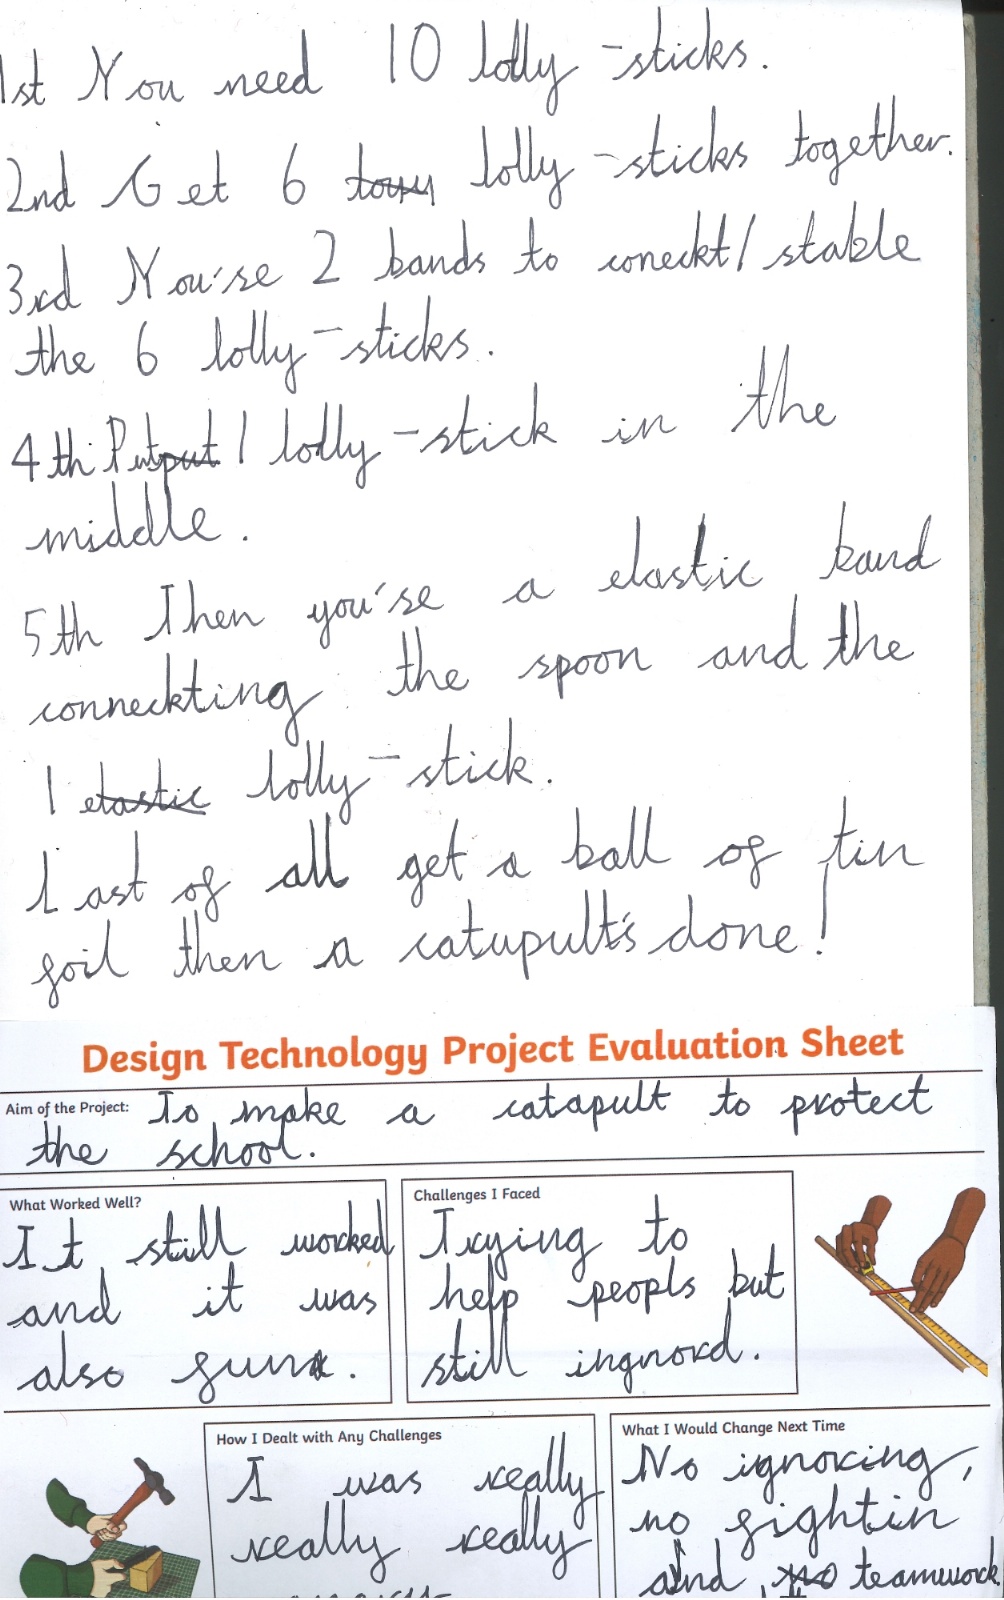 1st You need 10 lolly-sticks.
2nd Get 6 lolly-sticks together.
3rd You'se 2 bands to coneckt/stable
the 6 lolly-sticks.
4th Put 1 lolly-stick in the
middle.
5th Then you'se a elastic band
conneckting the spoon and the
1 elastic lolly-stick.
Last of all get a ball of tin
foil then a catupult's done!
Design Technology Project Evaluation Sheet
Aim of the Project: To make a catapult to protect
the school.
What Worked Well?
It still worked
and it was
also fun.
Challenges I Faced
Trying to
help peopls but
still ingnord.
How I Dealt with Any Challenges
I was really
really really
What I Would Change Next Time
No ignoring,
no fightin
and, no teamwork